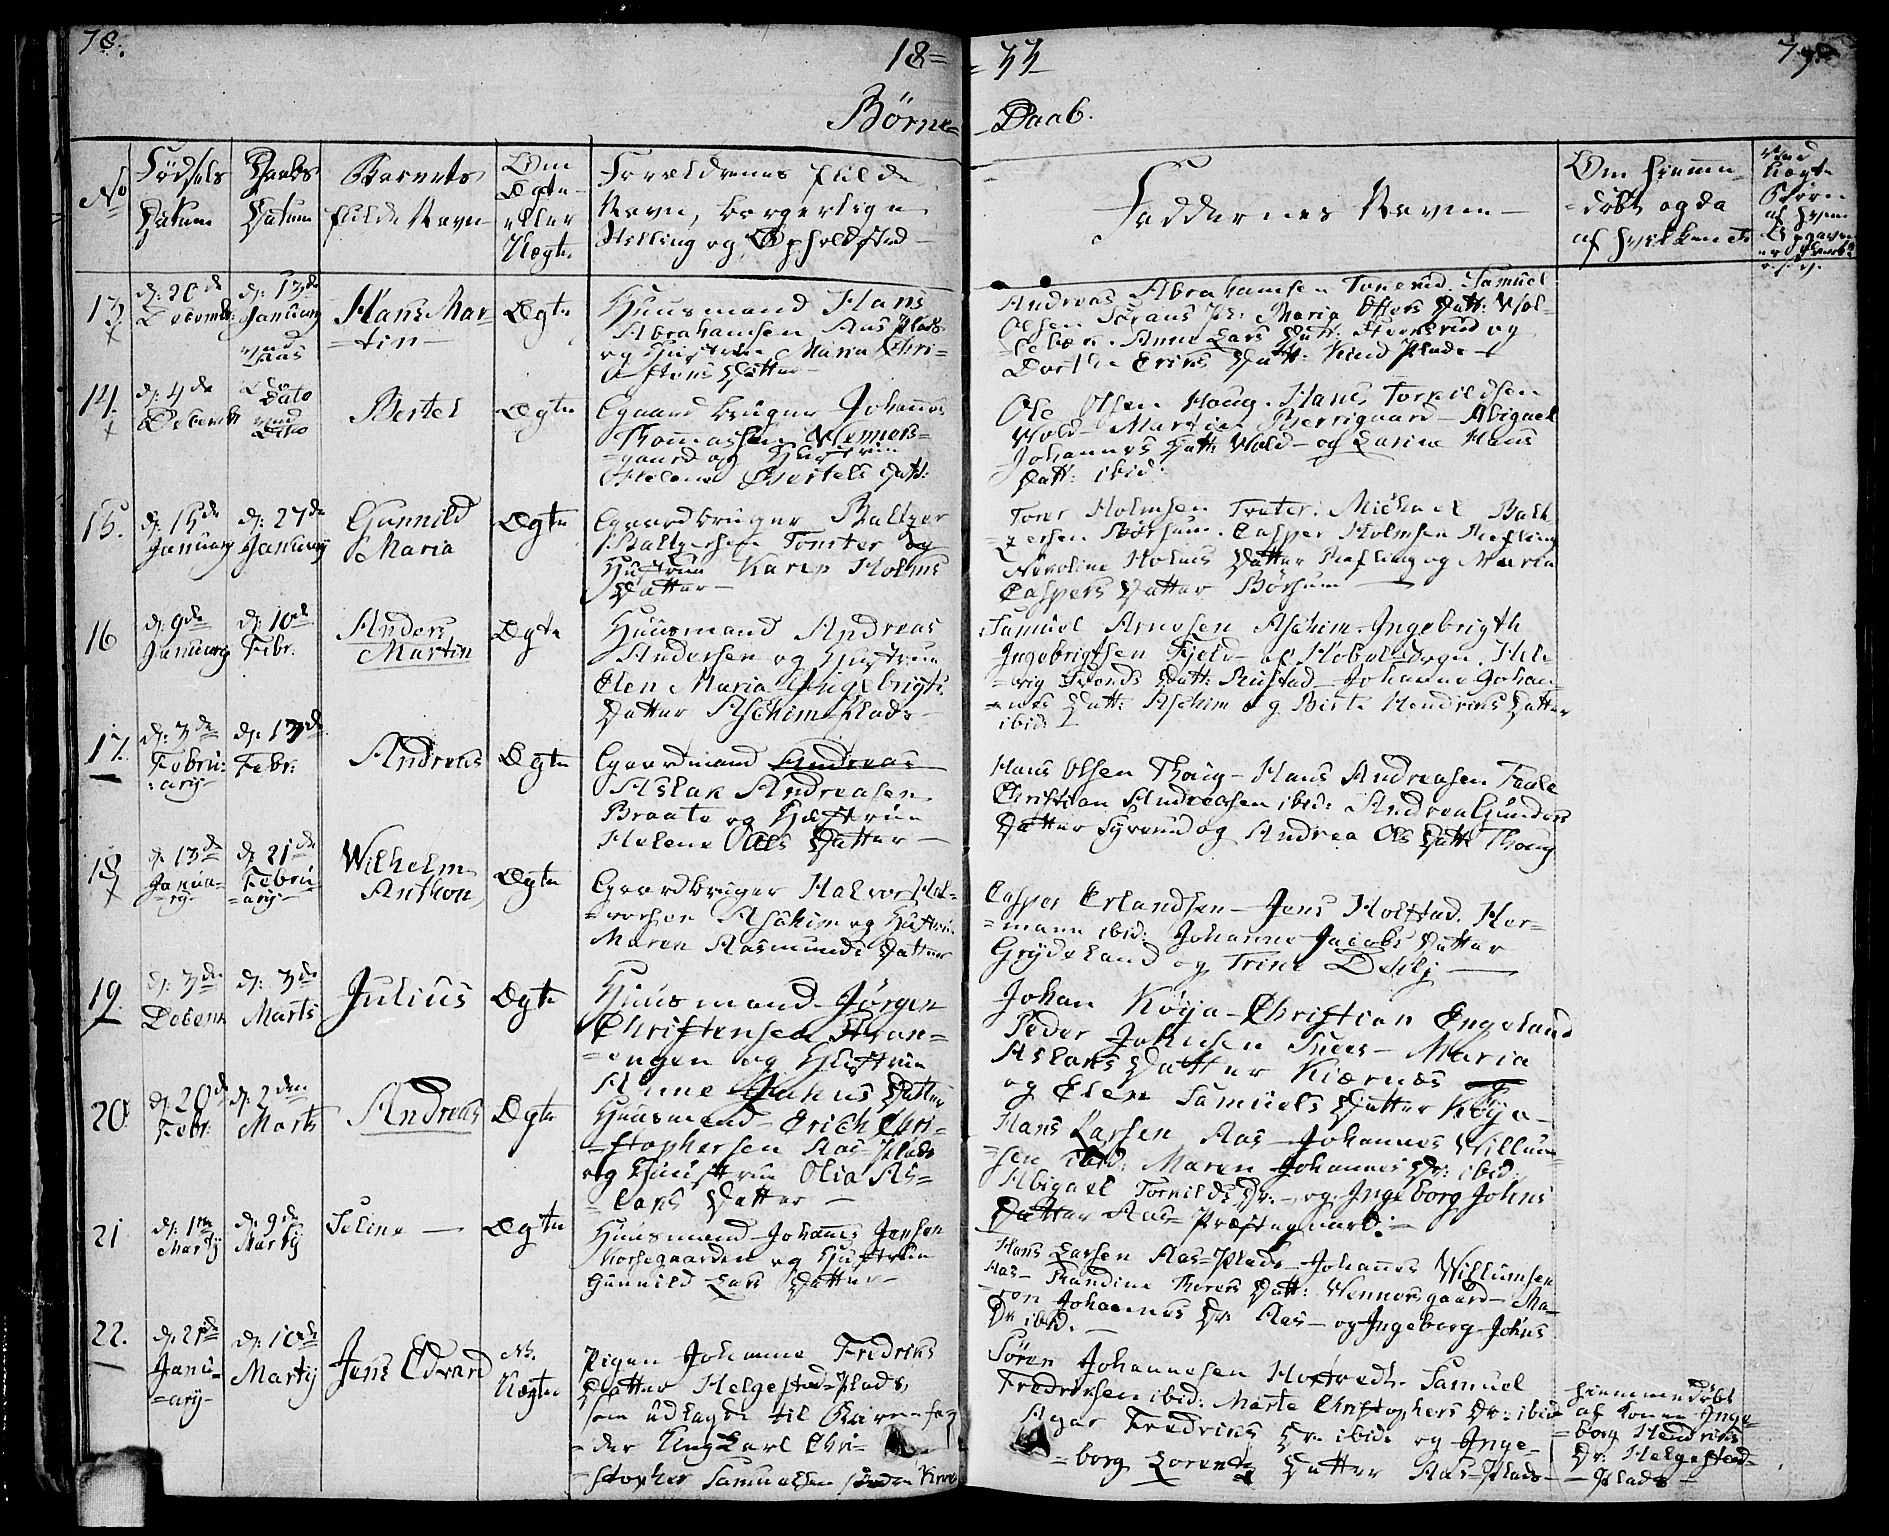 78.
18=
=33
79.
Börne=
=Daab.
No
Födsels Datum
Daabs Datum
Barnets fulde Navn
Om Ægte eller Uægte.
Forældrenes fulde
Navn, borgerlige
Stilling og Opholdsted
Faddernes Navne
Om hiemme
=döbt og da
af hvilken
13
d: 20de Decembr:
d: 13de January
Hans Mar=
=tin
Ægte
Huusmand Hans
Abrahamsen Aas Plads
og Hustrue Maria Chri=
=stens Datter
Andreas Abrahamsen Samuel
Olsen Maria Datt:
Anne Lars Datt: Steensrud og
Dorthe Eriks Datt: Plads
14.
d: 4de Decembr
Dito
Bertel
Ægte
Gaardbruger Johannes
Thommassen Wenners=
=gaard og Hustrue
Helene Bertels Datt:
Ole Olsen Houg. Hans Tornildsen
Wold Berrigaard Abigael
Johannes Datt: Wold og Larine Hans
Datt: ibid:
15.
d: 15de January
d: 27de January
Gunnild
Maria
Ægte
Gaardbruger Baltzer
Baltzersen Tomter og
Hustrue Karen Holms
Datter
Tore Holmsen Michael Balt
zersen Börsum. Casper Holmsen
Nicoline Holms Datter og Maria
Caspers Datter Börsum
16
d: 9de January
d: 10de Febr:
Anders
Martin
Ægte
Huusmand Andreas
Andersen og Hustrue
Elen Maria Ingebrigts
Datter Aschim Plads
Samuel Arnesen Aschim. Ingebrigth
Ingebrigtsen Fjeld af Hobøl Sogn. Hel=
=vig Datt: Rustad Johanne Johan=
=nes Datt: Aschim og Birte Hendriks Datter
ibid:
17.
d: 3de Febru:
:ary
d: 13de Febr:
Andreas
Ægte
Gaardmand Andreas
Aslak Andreasen
Braate og Hustrue
Helene Ols Datter
Hans Olsen Thoug Hans Andreasen
Christian Andreasen ibid: Andrea Gunders
Datter og Andrea Ols Datt: Thoug
18
d: 13de Janua=
=ry
d: 21de Febru=
=ary
Wilhelm
Anthon
Ægte
Gaardbruger Halvor Hal=
=vorsen Aschim og Hustrue
Maren Rasmunds Datter
Casper Erlandsen Jens Holstad. Her=
=mann ibid: Johanne Jacobs Datter
Grydeland og Trine Dehlj
19.
d: 3de Decem
d: 3de Marts
Julius
Ægte
Huusmand Jörgen
Christensen
=engen og Hustrue
Anne Datter
Johan Köya Christian Engelund
Peder Johnsen Maria
Aslaks Datter Kiærnæs
og Elen Samuels Datter Köya
20.
d: 20de Febr:
d: 2den Marts
Andreas
Ægte
Huusmand Erich Chri=
=stophersen Aas Plads
og Hustrue Olia As=
=laks Datter
Hans Larsen Aas Johannes Willum=
=sen ibid: Maren Johannes Dr: ibid.
Abigael Tornilds Dr: og Ingeborg Johns
Datter Aas= Præstegaard:
21
d: 1ste Martij
d: 9de Martij
Seline
Ægte
Huusmand Johannes Jensen
Morsegaarden og Hustrue
Gunnild Lars Datter
Hans Larsen Aas=Plads Johannes Willumsen
Aas Randine Thores Datt: Wennersgaard Ma=
=ren Johannes Dr: Aas og Ingeborg Johns
Dr ibid.
22.
d: 21de Janu=
=ary
d: 10de Martij
Jens Edvard
Nb. Uægte
Pigen Johanne Fredriks
Datter Helgestad=Plads,
som udlagde til Barnefa=
=der Ungkarl Chri=
=stopher Samuelsen
Sören Johannesen Samuel
Fredriksen ibid: Marte Christophers Dr: ibid
Agar Fredriks Dr. ibid: og Inge=
=borg Lorents Datter Aas=Plads
hiemmedöbt
af Konen Inge=
=borg Hendriks
Dr: Helgestad=
=Plads